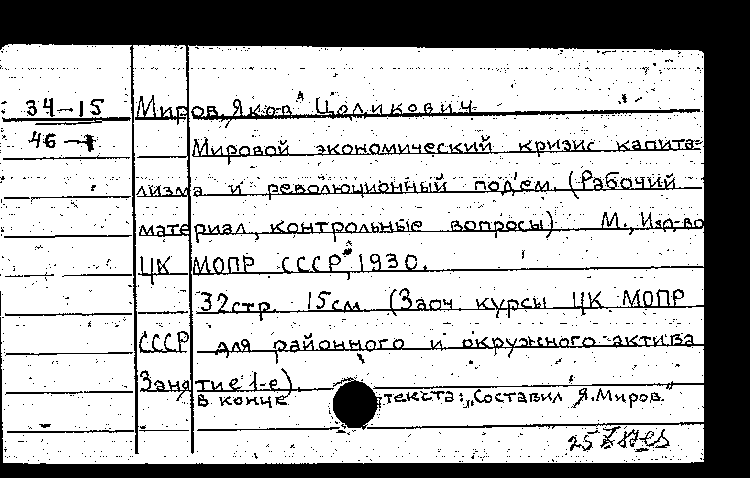 34-15 Миров, Яков Цаликович
46-1 Мировой экономический кризис капита-
лизма и революционный под'ем. (Рабочий
материал, контрольные вопросы) М., Изд-во
ЦК МОПР СССР, 1930.
32стр. 15см. (Заоч. курсы ЦК МОПР
СССР для районного и окружного актива
Занятие 1-е).
В конце текста: „Составил Я.Миров."